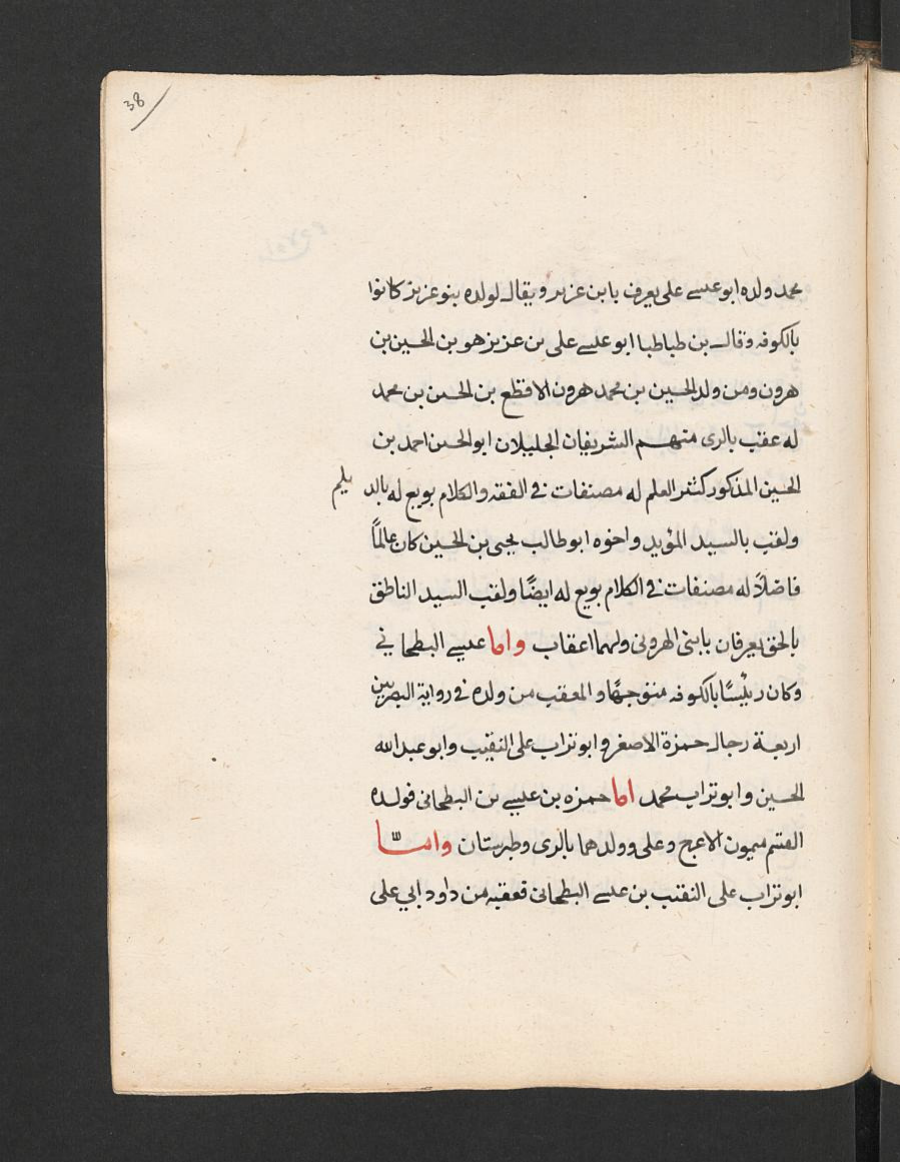 38
محمد ولده ابو عيسے علی يعرف بابن عزيز و يقال لولده بنو عزيز كانوا
بالكوفه وقال بن طباطبا ابو عليے علی بن عزيز هو بن الحسين بن
هرون ومن ولد الحسين بن محمد هرون الاقطع بن الحسن بن محمد
له عقب بالری منهم الشريفان الجليلان ابو الحسن احمد بن
الحسين المذكور كثير العلم له مصنفات فی الفقه والكلام بويع له بالد يلم
ولقب بالسيد المؤيد واخوه ابو طالب يحيی بن الحسين كان عالماً
فاضلاً له مصنفات فی الكلام بويع له ايضًا ولقب السيد الناطق
بالحق يعرفان بابنی الهرونی ولهما اعقاب واما عيسے البطحانی
وكان رئيسًا بالكوفه متوجهًا والمعقب من ولده فی رواية البصريين
اربعة رجال حمزة الاصغر وابو تراب علی النقيب وابو عبد الله
الحسين وابو تراب محمد اما حمزه بن عيسے بن البطحانی فولده
القسم ميمون الاعرج وعلی وولدهما بالری وطبرستان وامّا
ابو تراب علی النقيب بن عيسے البطحانی فعقبه من داود ابي علی